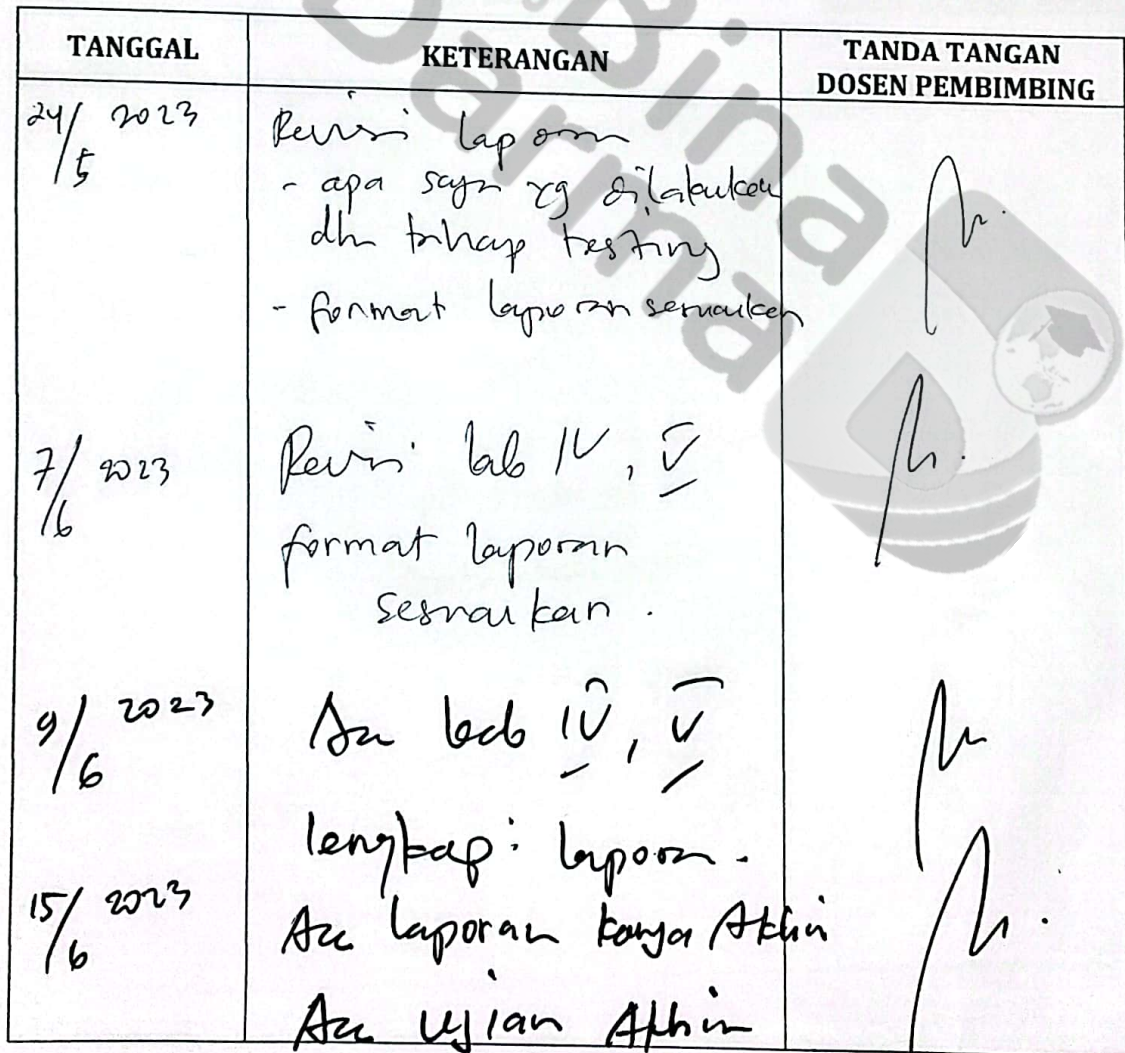 TANGGAL KETERANGAN TANDA TANGAN
DOSEN PEMBIMBING
Bina
Darma
24/5 2023 Revisi laporan
- apa saja yg dilakukan
dlm tahap testing
- format laporan sesuaikan
7/6 2023 Revisi bab IV, V
format laporan
sesuaikan.
9/6 2023 Acc bab IV, V
lengkapi laporan.
15/6 2023 Acc laporan karya Akhir
Acc Ujian Akhir